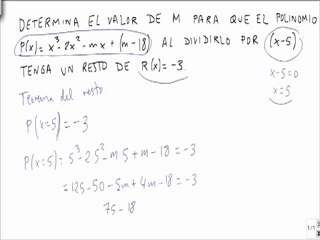 DETERMINA EL VALOR DE M PARA QUE EL POLINOMIO
P(x)=x³-2x²-mx+(m-18) AL DIVIDIRLO POR (x-5)
TENGA UN RESTO DE R(x)=-3.
x-5=0
x=5
Teorema del resto
P(x=5)=-3
P(x=5)=5³-2·5²-m·5+m-18=-3
=125-50-5m+4m-18=-3
75-18
1/1